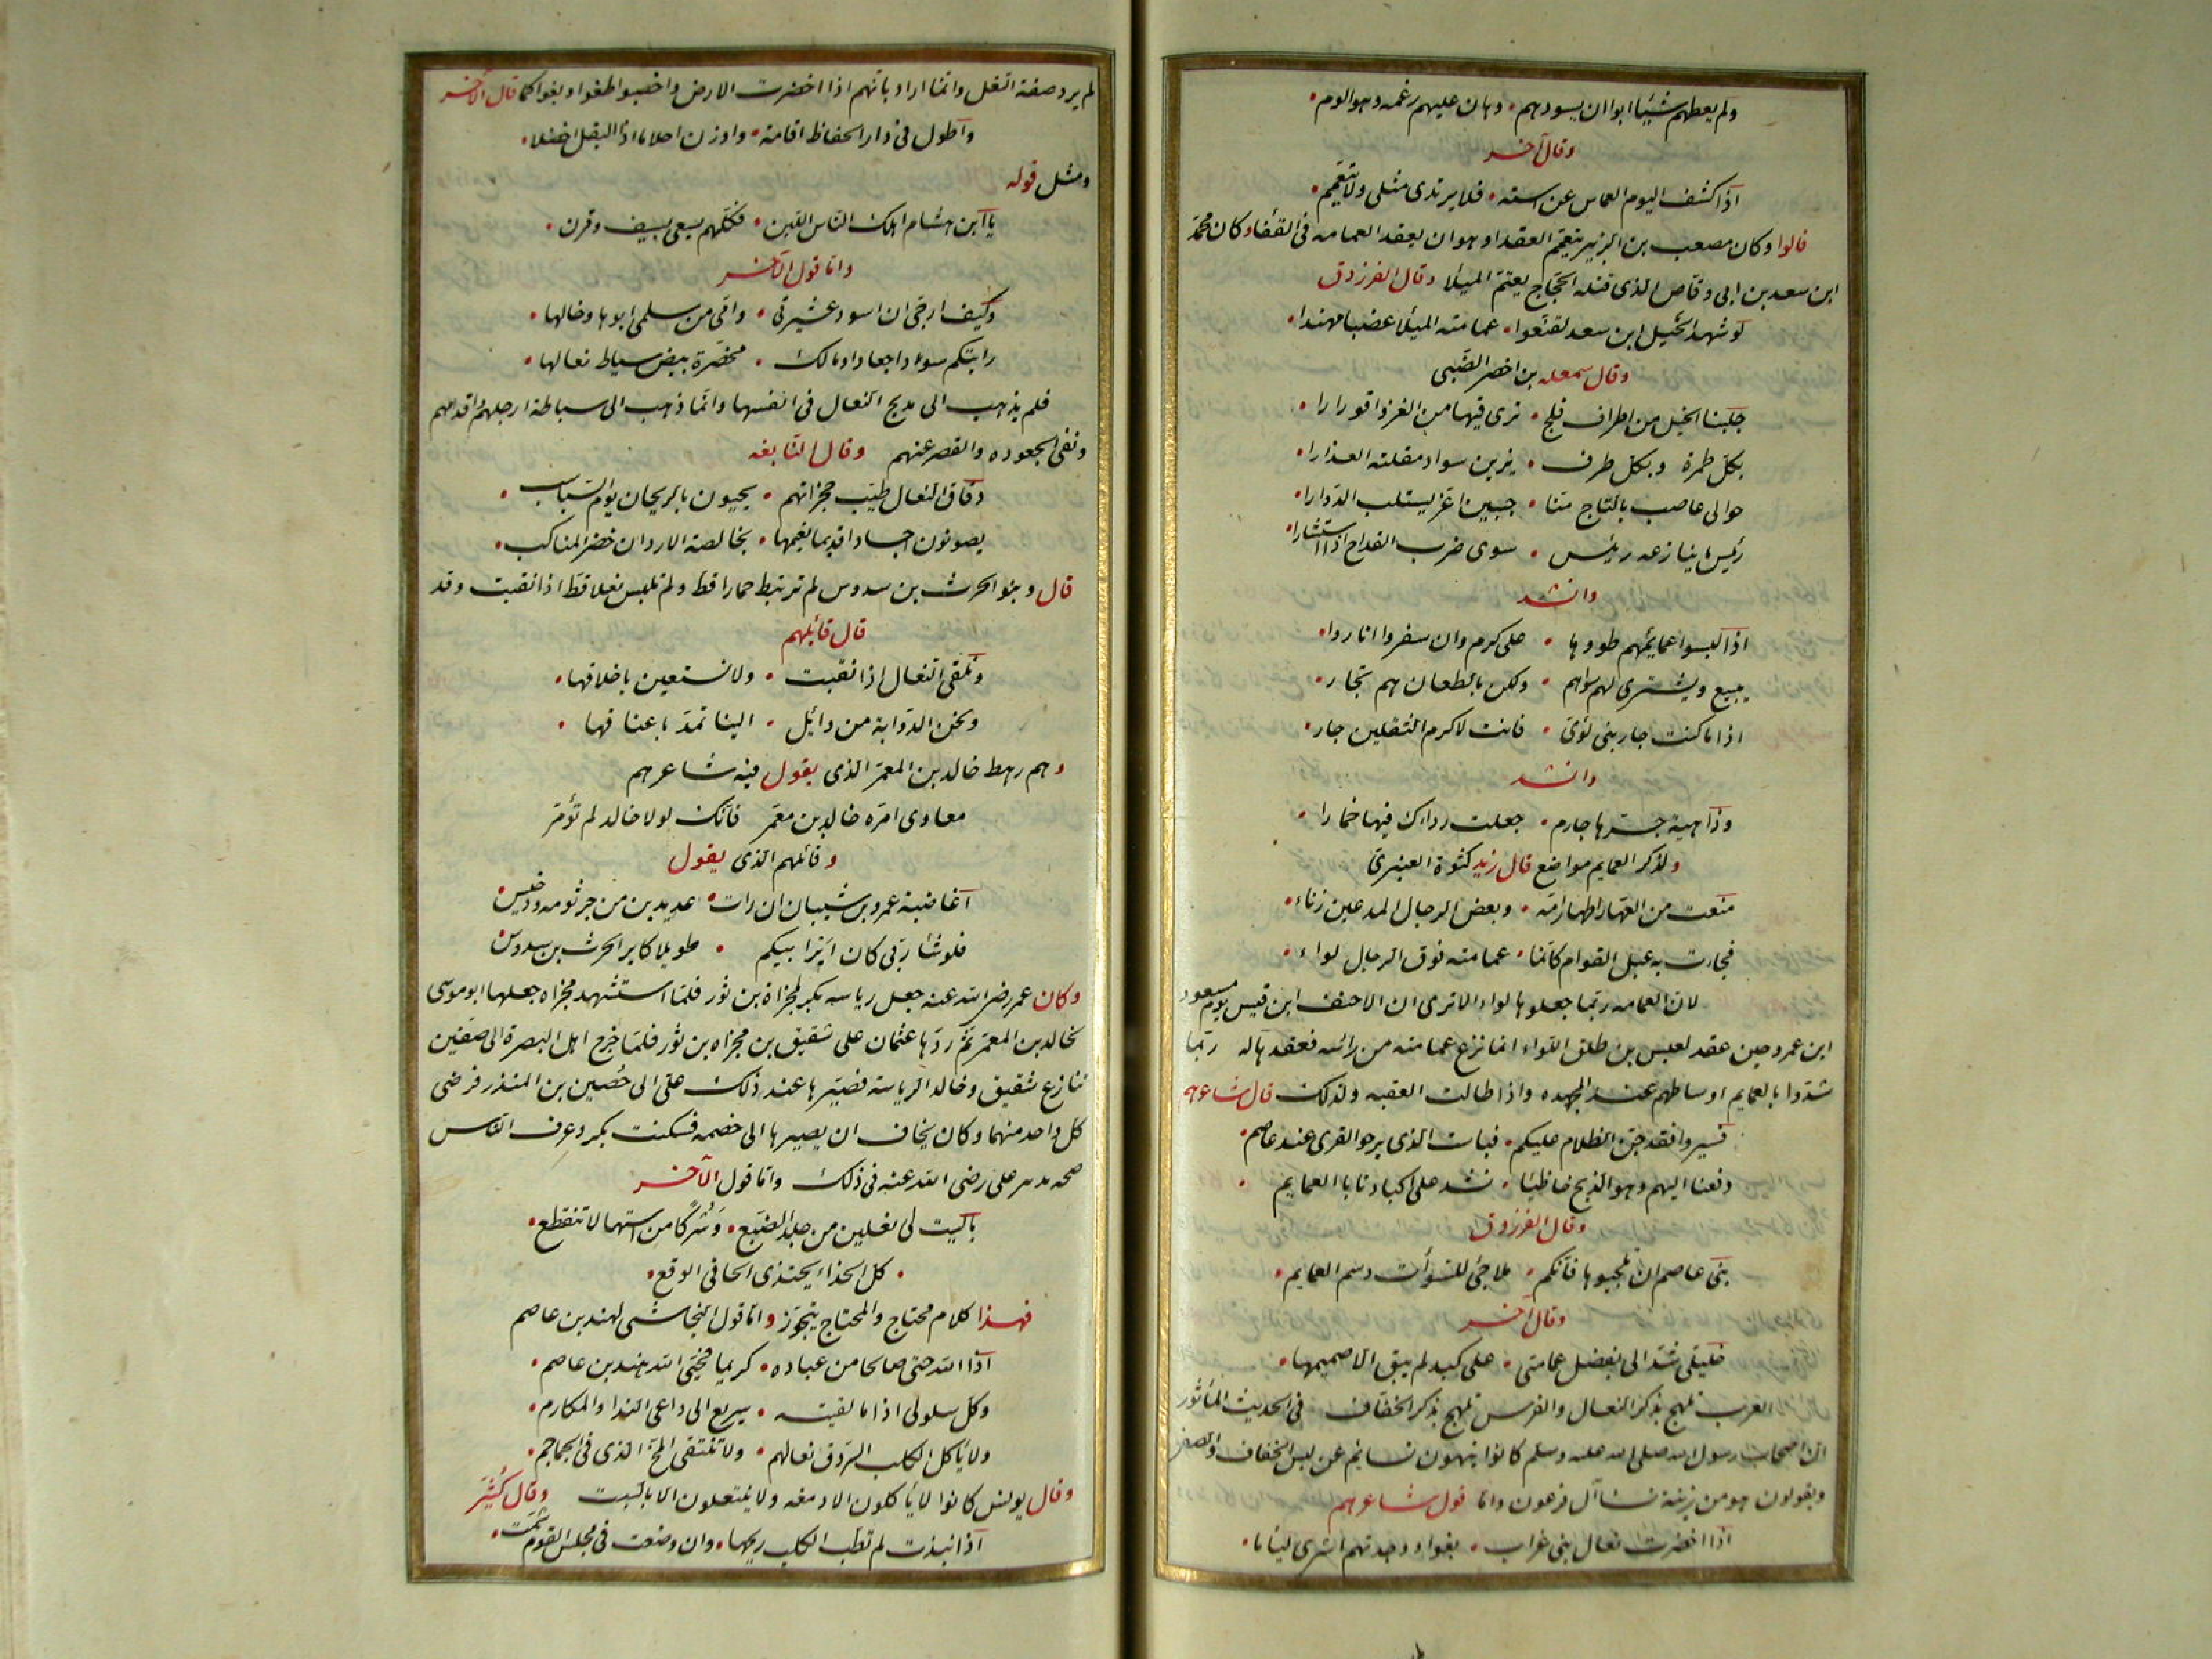 ولم يعطهم شيئا ابوا ان يسودهم • وهان عليهم رغمه وهو الوم •
وقال آخر
اذا كشف اليوم العماس عن استه • فلا يرتدى مثلى ولا يتعمم •
قالوا وكان مصعب بن الزبير يتعمم العقدا وهو ان يعقد العمامه فى القفا وكان محمد
ابن سعد بن ابى وقاص الذى قتله الحجاج يعتم الميلا وقال الفرزدق
لو شهد الخيل ابن سعد لقنعوا • عمامته الميلا عضبا مهندا •
وقال سمعله بن اخضر الضبى
جلبنا الخيل من اطراف فلج • ترى فيها من الغزو اقورارا •
بكل طمرة وبكل طرف • يزين سواد مقلته العذارا •
حوالى عاصب بالتاج منا • جبين اغر يستلب الدوارا •
رئيس ما ينازعه رئيس • سوى ضرب القداح اذا استشارا •
وانشد
اذا لبسوا عمايمهم طووها • على كرم وان سفروا اناروا •
يبيع ويشترى لهم سواهم • ولكن بالطعان هم تجار •
اذا ما كنت جار بنى لؤى • فانت لاكرم الثقلين جار •
وانشد
وداهية جرها جارم • جعلت رداك فيها خمارا •
ولذكر العمايم مواضع قال زيد كثوة العنبرى
منعت من العهار اطهار امه • وبعض الرجال المدعين زناء •
فجاءت به عبل القوام كانما • عمامته فوق الرجال لواء •
لان العمامه ربما جعلوها لواء الا ترى ان الاحنف ابن قيس يوم مسعود
ابن عمرو حين عقد لعبس بن طلق اللواء انما نزع عمامته من راسه فعقدها له ربما
شدوا بالعمايم اوساطهم عند المجهده واذا طالت العقبه ولذلك قال شاعرهم
فسيروا فقد جن الظلام عليكم • فبات الذى يرجو القرى عند عاصم •
دفعنا اليهم وهو الذيخ خاظيا • نشد على اكبادنا بالعمايم •
وقال الفرزدق
بنى عاصم ان تلجبوها فانكم • ملاجئ للسوات دسم العمايم •
وقال آخر
خليلى شدا لى بفضل عمامتى • على كبد لم يبق الا صميمها •
العرب تلهج بذكر النعال والفرس تلهج بذكر الخفاف فى الحديث المأثور
ان اصحاب رسول الله صلى الله عليه وسلم كانوا ينهون نسائهم عن لبس الخفاف والصفر
ويقولون هو من زينة نسا آل فرعون واما قول شاعرهم
اذا اخضرت نعال بنى غراب • بغوا ووجدتهم اشرى لئاما •
لم يرد صفة النعل وانما اراد بانهم اذا اخضرت الارض واخصبوا طغوا وبغوا كما قال الآخر
واطول فى دار الحفاظ اقامة • واوزن احلاما اذا البقل اخضلا •
ومثل قوله
يا ابن هشام اهلك الناس اللبن • فكلهم يسعى بسيف وقرن •
واما قول الآخر
وكيف ارجى ان اسود عشيرتى • وامى من سلمى ابوها وخالها •
رايتكم سودا جعادا ومالك • مخصرة بيض سباط نعالها •
فلم يذهب الى مديح النعال فى انفسها وانما ذهب الى سباطة ارجلهم واقدامهم
ونفى الجعوده والقصر عنهم وقال النابغه
دقاق النعال طيب حجزاتهم • يحيون بالريحان يوم السباسب •
يصونون اجسادا قديما نعيمها • بخالصة الاردان خضر المناكب •
قال وبنو الحرث بن سدوس لم ترتبط حمارا قط ولم تلبس نعلا قط اذا نقبت وقد
قال قائلهم
ونلقى النعال اذا نقبت • ولا نستعين باخلاقها •
ونحن الذوابة من وائل • الينا تمد باعناقها •
وهم رهط خالد بن المعمر الذى يقول فيه شاعرهم
معاوى امره خالد بن معمر فانك لولا خالد لم تؤمر
وقائلهم الذى يقول
اغاضبة عمرو بن شيبان ان رات • عديدين من جرثومه ودخيس •
فلو شا ربى كان اير ابيكم • طويلا كاير الحرث بن سدوس
وكان عمر رضى الله عنه جعل رياسه بكر لمجزاة بن ثور فلما استشهد مجزاه جعلها ابو موسى
لخالد بن المعمر ثم ردها عثمان على شقيق بن مجزاه بن ثور فلما خرج اهل البصرة الى صفين
تنازع شقيق وخالد الرياسة فصيرها عند ذلك على الى حصين بن المنذر فرضى
كل واحد منهما وكان يخاف ان يصيرها الى خصمه فسكنت بكر وعرف الناس
صحه تدبير على رضى الله عنه فى ذلك واما قول الآخر
ياليت لى نعلين من جلد الضبع • وشركا من استها لا تنقطع •
• كل الحذاء يحتذى الحافى الوقع •
فهذا كلام محتاج والمحتاج يتجوز واما قول النجاشى لهند بن عاصم
اذا الله حيى صالحا من عباده • كريما فحيى الله هند بن عاصم •
وكل سلولى اذا ما لقيته • سريع الى داعى الندا والمكارم •
ولا ياكل الكلب السروق نعالهم • ولا تنتقى المخ الذى فى الجماجم •
وقال يونس كانوا لا يأكلون الادمغه ولا ينتعلون الا بالسبت وقال كثير
اذا نبذت لم تطب الكلب ريحها • وان وضعت فى مجلس القوم شمت •